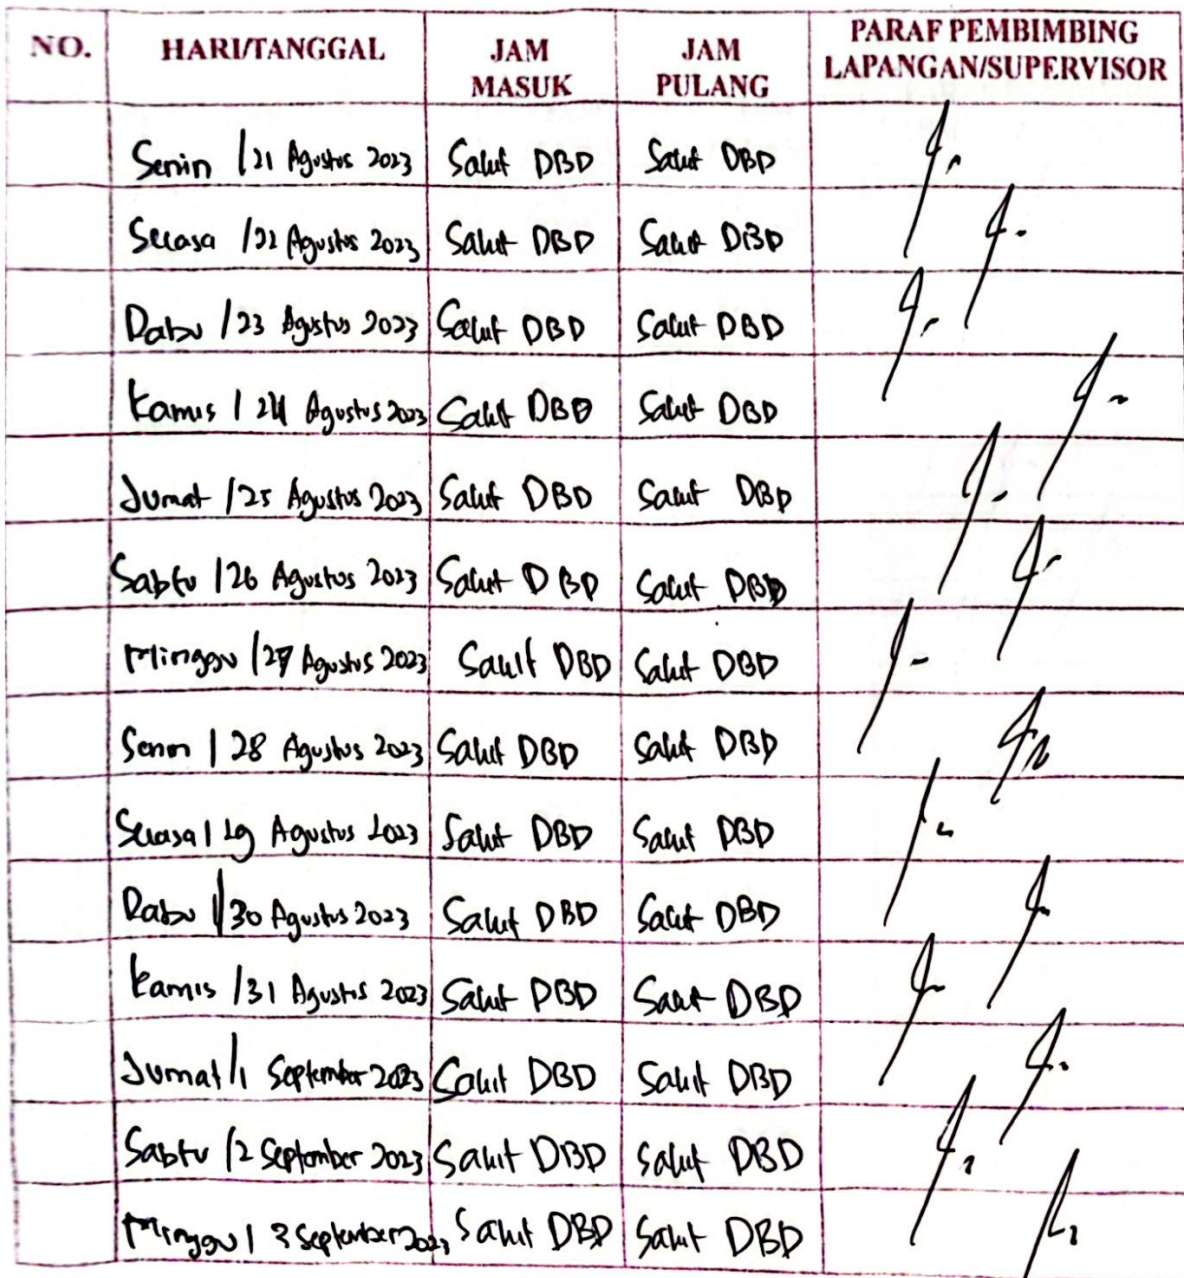 NO. HARI/TANGGAL JAM MASUK JAM PULANG PARAF PEMBIMBING LAPANGAN/SUPERVISOR
Senin / 21 Agustus 2023 Sakit DBD Sakit DBD
Selasa / 22 Agustus 2023 Sakit DBD Sakit DBD
Rabu / 23 Agustus 2023 Sakit DBD Sakit DBD
Kamis / 24 Agustus 2023 Sakit DBD Sakit DBD
Jumat / 25 Agustus 2023 Sakit DBD Sakit DBD
Sabtu / 26 Agustus 2023 Sakit DBD Sakit DBD
Minggu / 27 Agustus 2023 Sakit DBD Sakit DBD
Senin / 28 Agustus 2023 Sakit DBD Sakit DBD
Selasa / 29 Agustus 2023 Sakit DBD Sakit DBD
Rabu / 30 Agustus 2023 Sakit DBD Sakit DBD
Kamis / 31 Agustus 2023 Sakit DBD Sakit DBD
Jumat / 1 September 2023 Sakit DBD Sakit DBD
Sabtu / 2 September 2023 Sakit DBD Sakit DBD
Minggu / 3 September 2023 Sakit DBD Sakit DBD